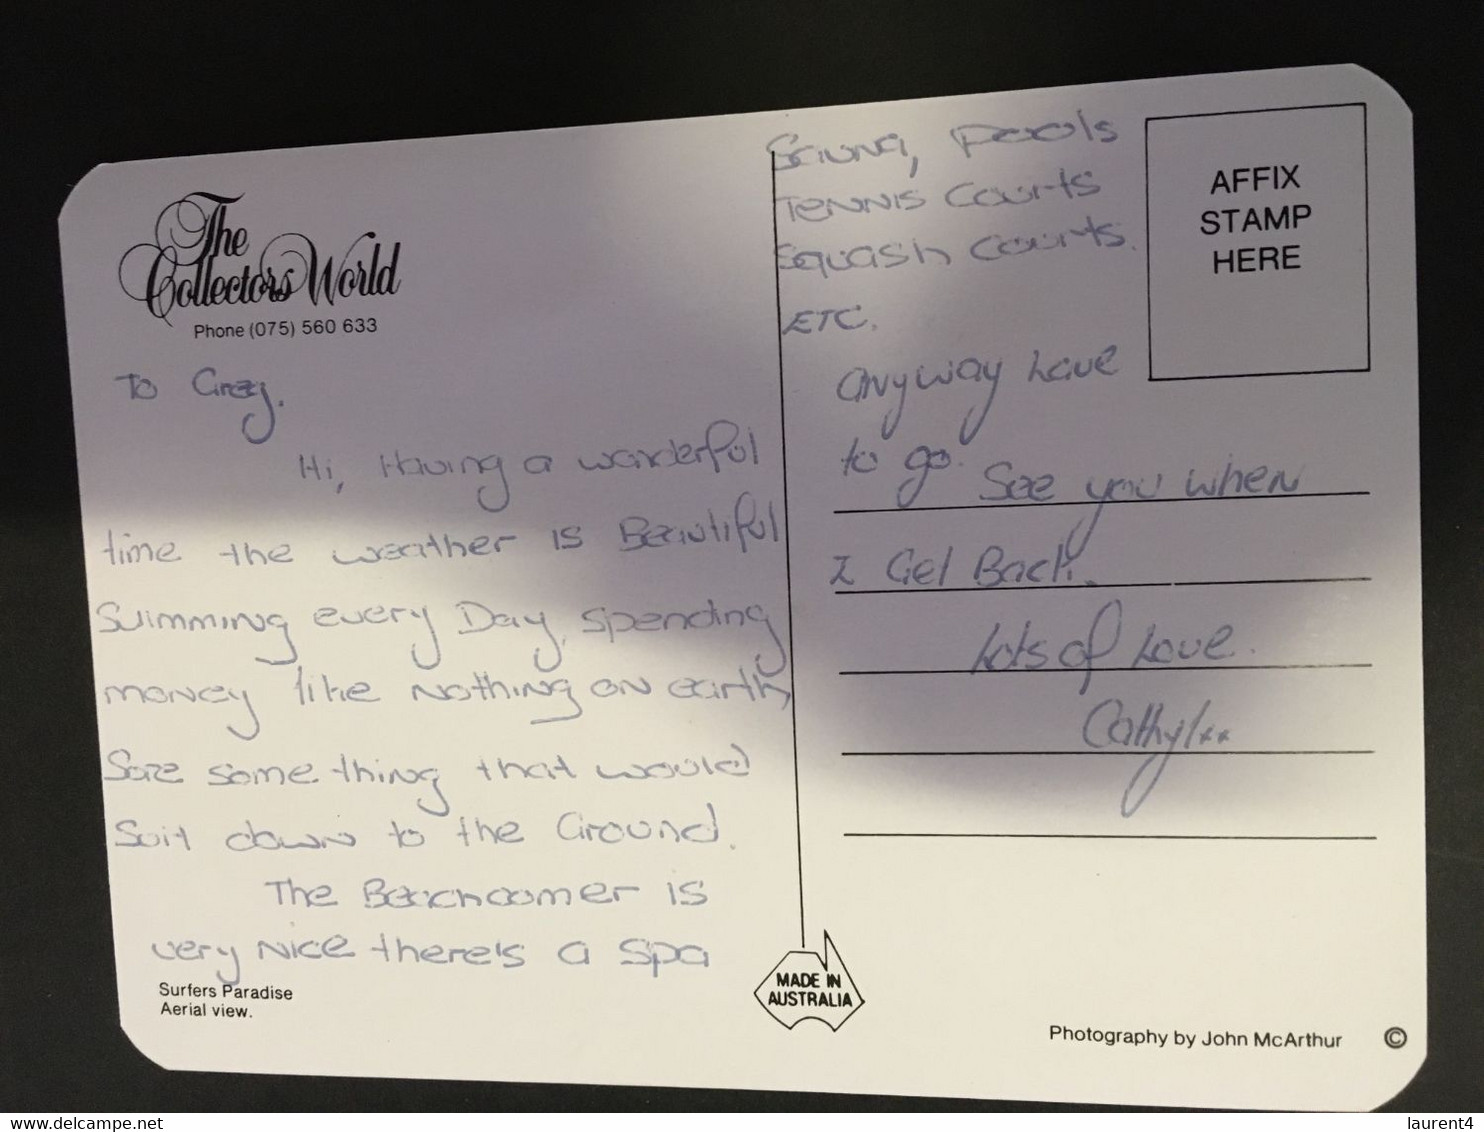 The
Collectors World
Phone (075) 560 633
To Greg.
Hi, Having a wonderful
time the weather is Beautiful
Swimming every Day, spending
money like nothing on earth,
Saze some thing that would
Suit down to the Ground.
The Beachcomer is
very Nice there's a spa
Surfers Paradise
Aerial view.
Sauna, pools
Tennis Courts
Squash Courts.
ETC.
Anyway have
to go. See you when
I Get Back.
Lots of Love.
Cathy xx
AFFIX
STAMP
HERE
MADE IN
AUSTRALIA
Photography by John McArthur ©
delcampe.net
laurent4